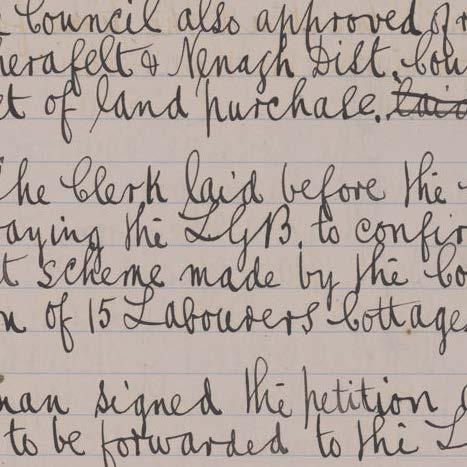 Council also approved of
herafelt & Nenagh Dist. Cou
ct of land purchase. laid
The Clerk laid before the
raying the L.G.B. to confir
t scheme made by the Co
n of 15 Labourers Cottages
man signed the petition
to be forwarded to the L